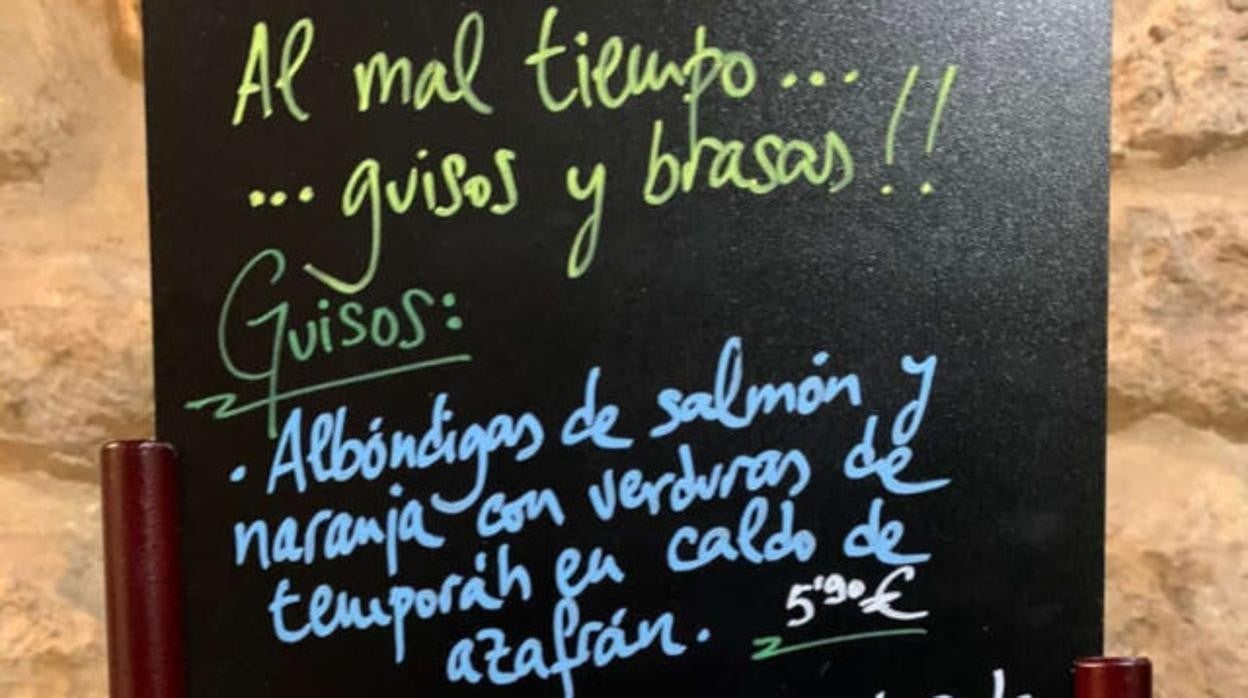 Al mal tiempo...
... guisos y brasas!!
Guisos:
· Albóndigas de salmón y
naranja con verduras de
temporáh en caldo de
azafrán. 5'90€